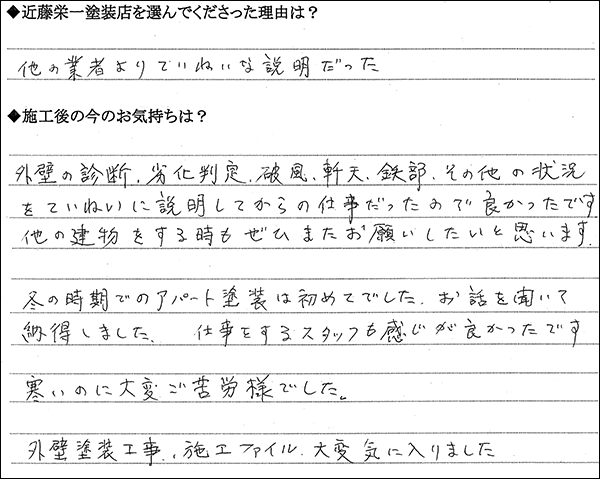 ◆近藤栄一塗装店を選んでくださった理由は？
他の業者よりていねいな説明だった
◆施工後の今のお気持ちは？
外壁の診断、劣化判定、破風、軒天、鉄部、その他の状況
をていねいに説明してからの仕事だったので良かったです
他の建物をする時もぜひまたお願いしたいと思います。
冬の時期でのアパート塗装は初めてでした。お話を聞いて
納得しました。 仕事をするスタッフも感じが良かったです
寒いのに大変ご苦労様でした。
外壁塗装工事、施工ファイル、大変気に入りました